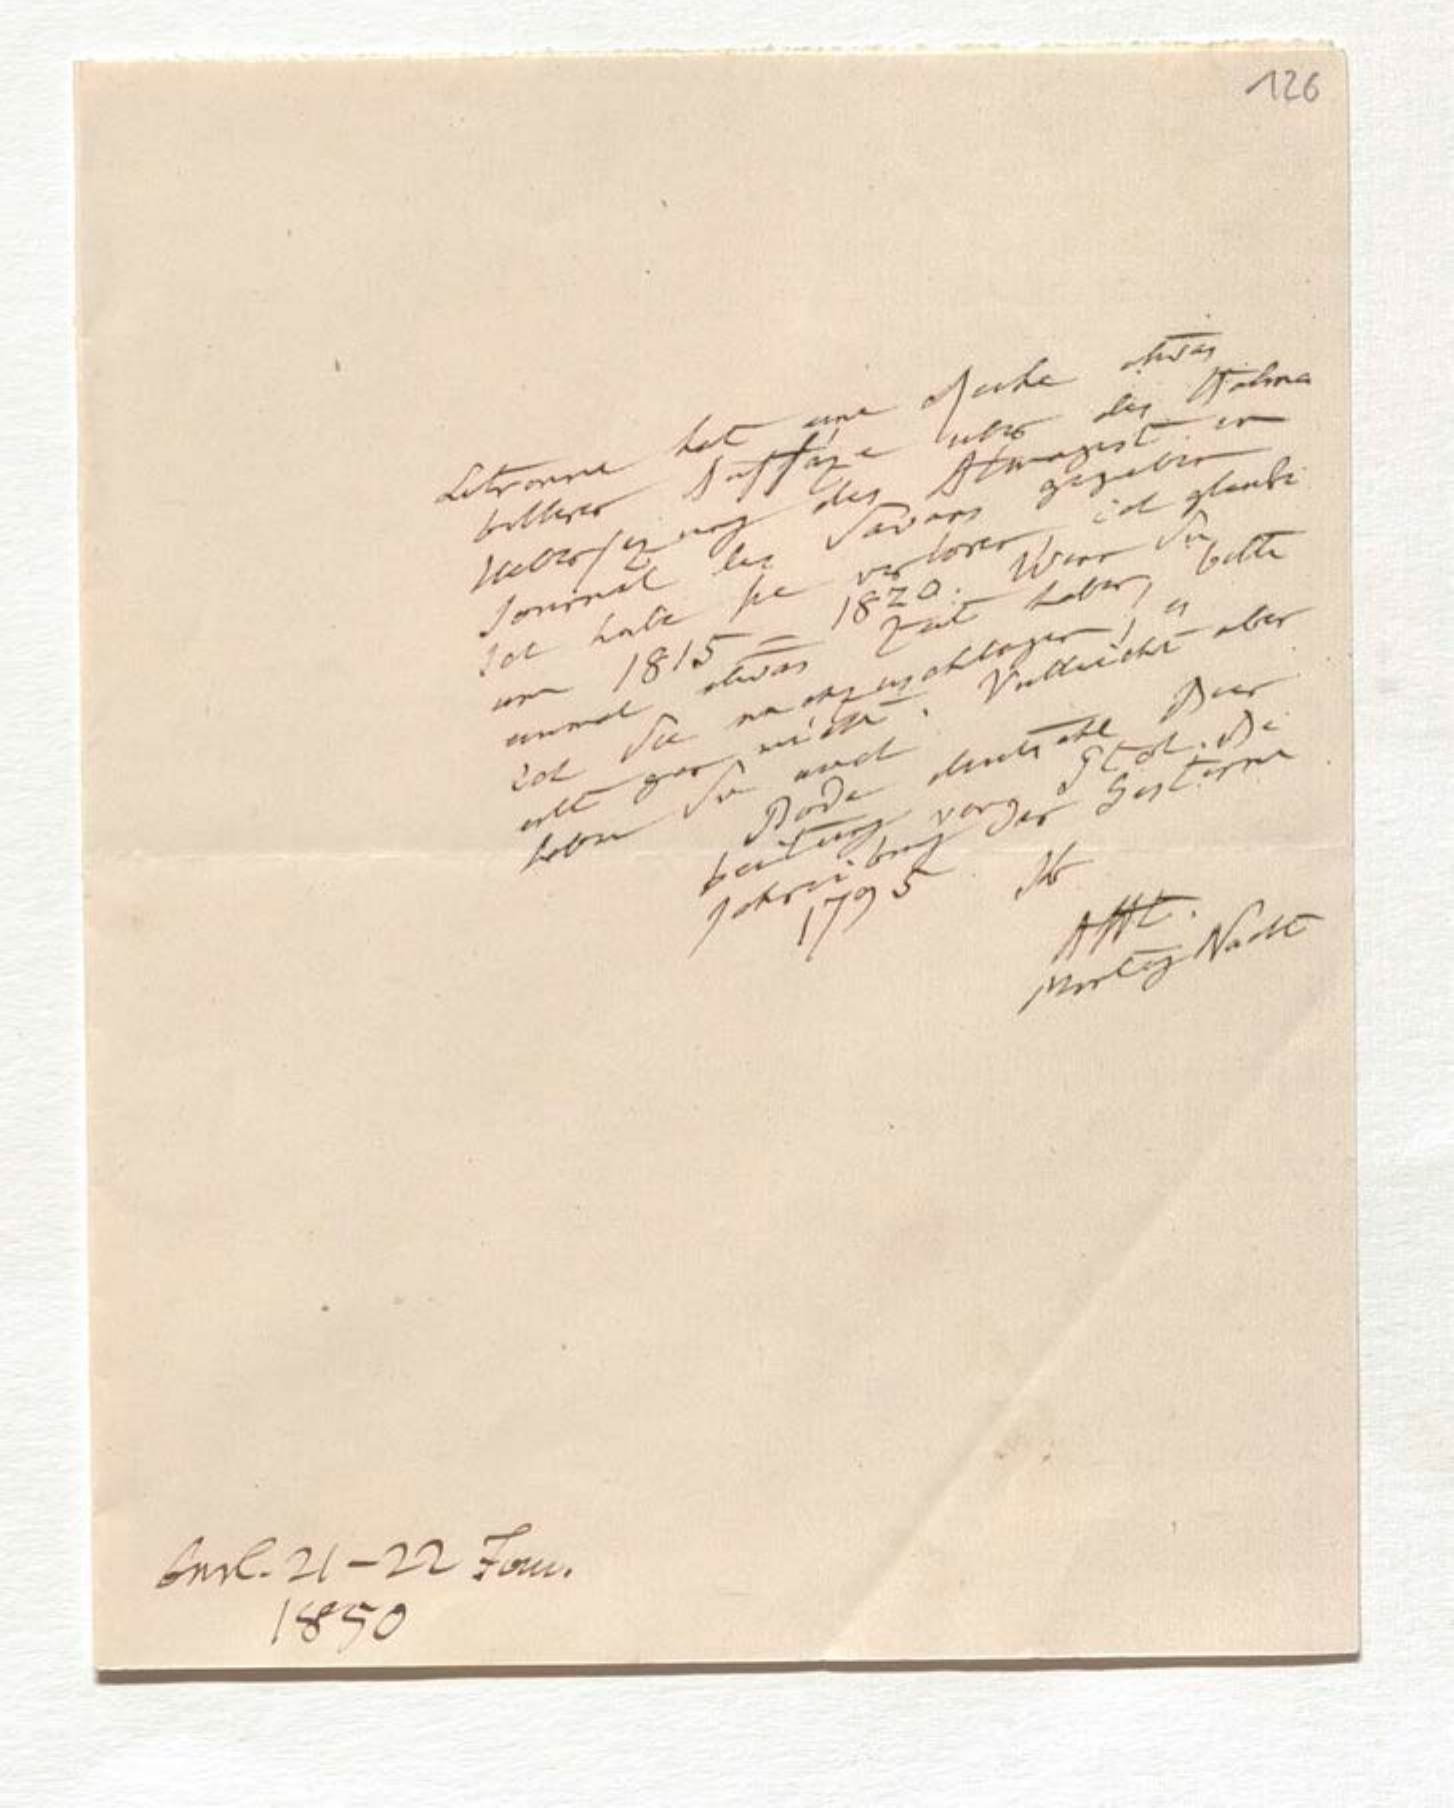 126
Letronne hat eine Reihe etwas
bitterer Aufsäze über des Halma
Uebersezung des Almagest im
Journal des Savans gegeben
Ich habe sie verloren, ich glaube
von 1815 – 1820. Wenn Sie
einmal etwas Zeit haben, bitte
ich Sie nachzuschlagen! es
eilt gar nicht. Vielleicht aber
haben Sie auch
Bode deutsche Bear
beitung von Ptol. Be
schreibung der Gestirne
1795 Ihr
AHt.
Montag Nacht
21–22 Jan.
1850